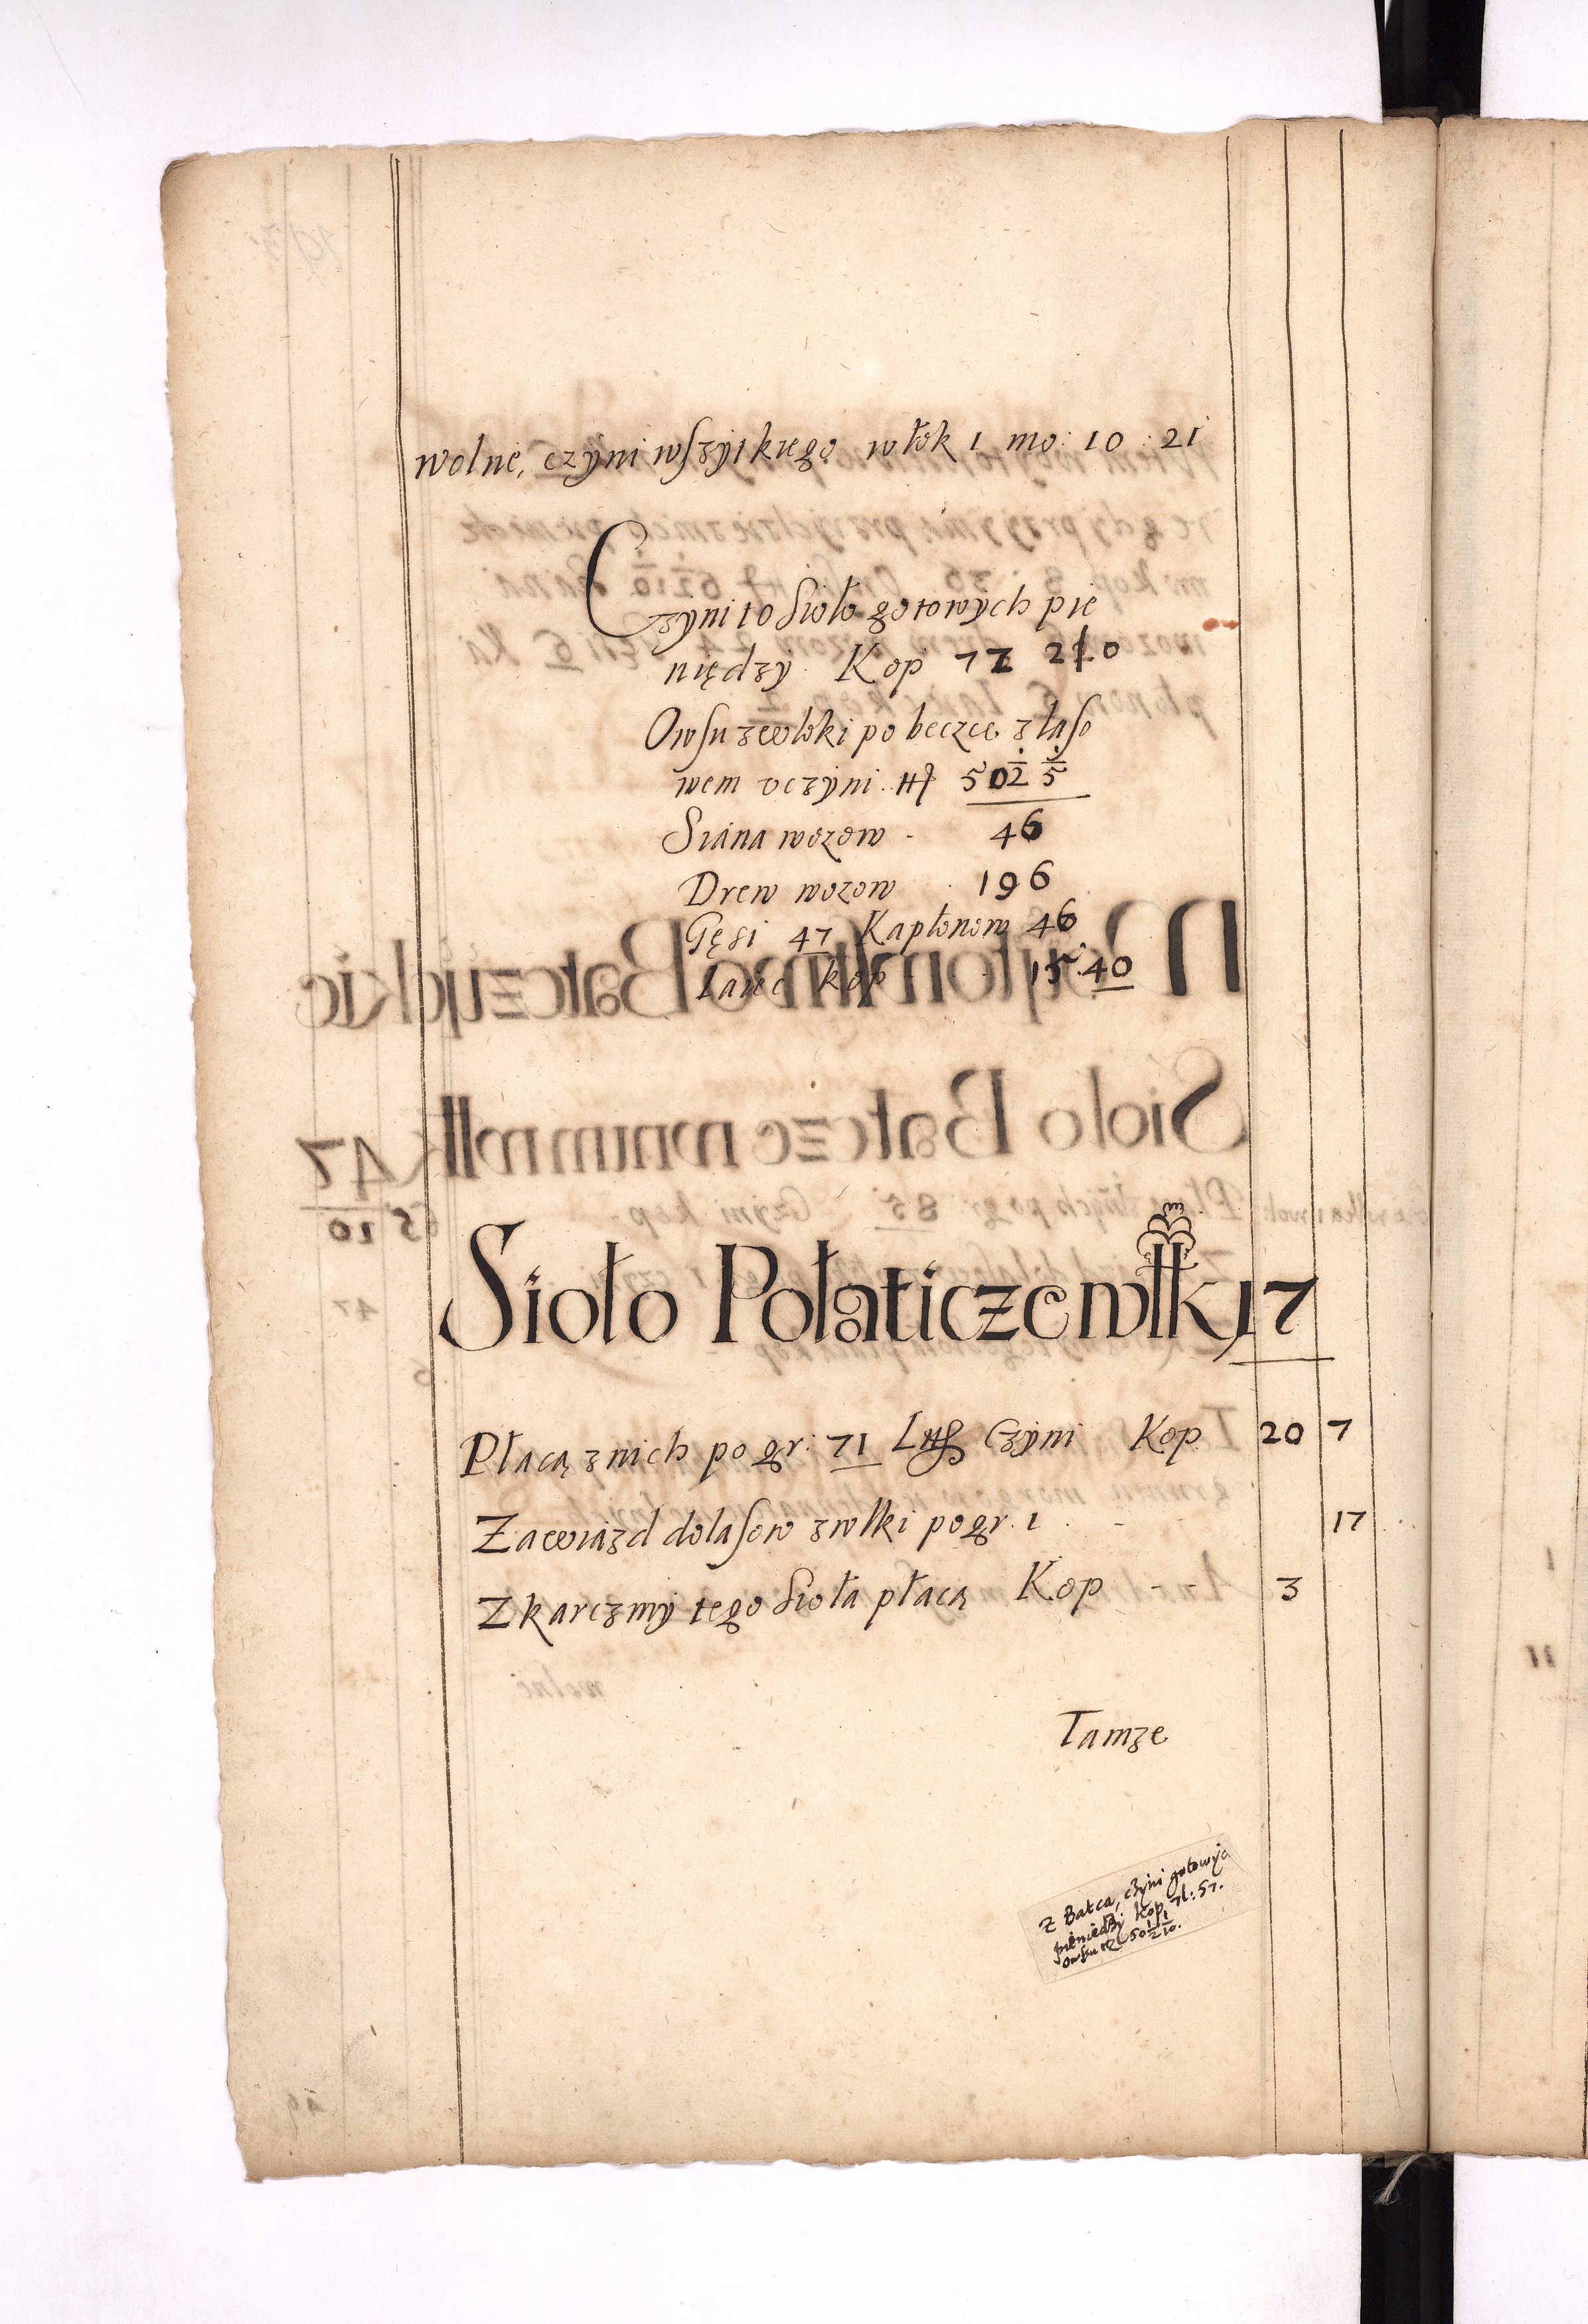 wolne, czyni wszytkiego włok 1 mo: 10 : 21
Czyni to Sioło gotowych pie
niędzy Kop 72 2 0
Owsu z włoki po beczce z łaso
wem vczyni 50 2 5
Siana wozow - 46
Drew wozow 196
Gęsi 47 Kapłonow 46
Iaiec kop 15 40
Sioło Połaticze włk 17
Płacą z nich po gr: 71 Czyni Kop 20 7
Za wiazd do lasow z wlki po gr. 1 - 17
Z karczmy tego Sioła płacą Kop - - 3
Tamze
Z Batca, czyni gotowija
pieniedzy Kop 71: 57.
owsu 50 1/2 1/10.